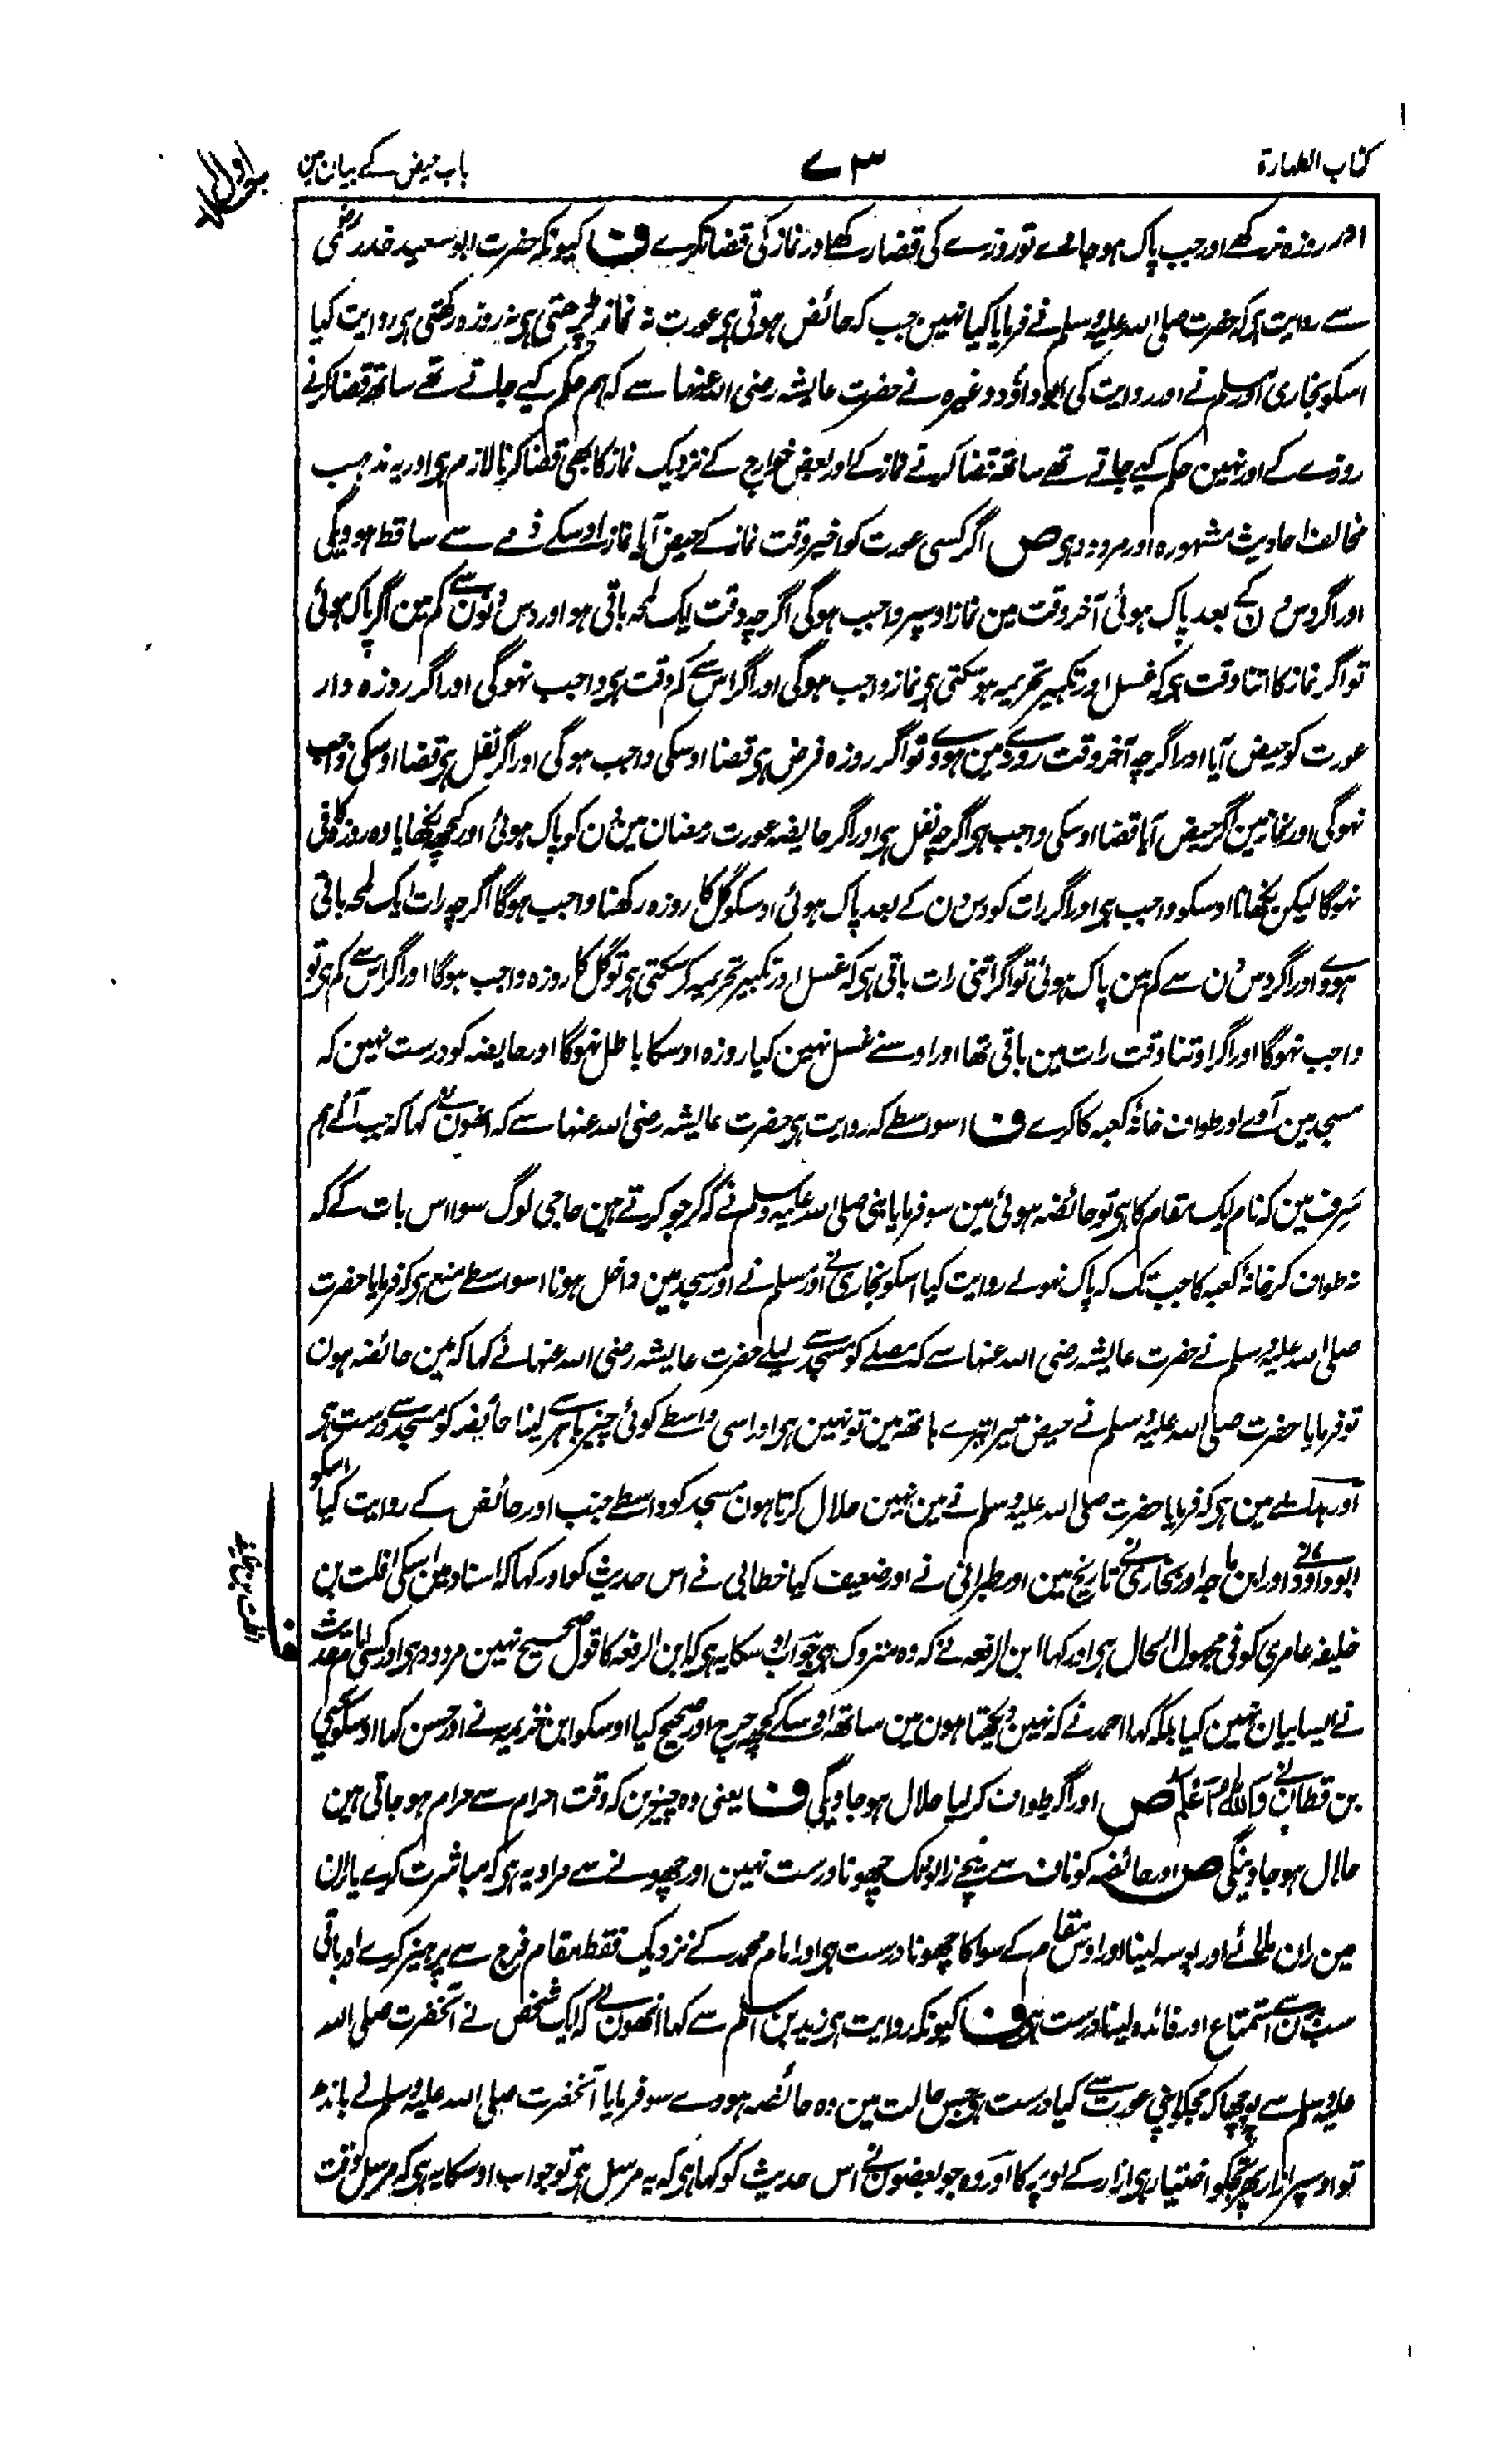 کتاب الطہارۃ
۷۳
باب حیض کے بیان مین
اور روزہ نرکھے اور جب پاک ہوجاوے تو روزے کی قضا رکھے اور نماز کی قضا نکرے ف کیونکہ حضرت ابو سعید خدری رض
سے روایت ہی کہ حضرت صلی اللہ علیہ وسلم نے فرمایا کیا نہین جب کہ حائض ہوتی ہی عورت نہ نماز پڑھتی ہی نہ روزہ رکھتی ہی روایت کیا
اسکو بخاری اور مسلم نے اور روایت کی ابو داؤد وغیرہ نے حضرت عایشہ رضی اللہ عنہا سے کہ ہم حکم کیے جاتے تھے ساتھ قضا کرنے
روزے کے اور نہین حکم کیے جاتے تھے ساتھ قضا کرنے نماز کے اور بعض خوارج کے نزدیک نماز کا بھی قضا کرنا لازم ہی اور یہ مذہب
مخالف احادیث مشہورہ اور مردود ہی ص اگر کسی عورت کو اخیر وقت نماز کے حیض آیا نماز اوسکے ذمے سے ساقط ہوویگی
اور اگر دس دن کے بعد پاک ہوئی آخر وقت مین نماز اوسپر واجب ہوگی اگرچہ وقت ایک لمحہ باقی ہو اور دس دنون سے کم مین اگر پاک ہوئی
تو اگر نماز کا اتنا وقت ہی کہ غسل اور تکبیر تحریمہ ہوسکتی ہی نماز واجب ہوگی اور اگر اس سے کم وقت ہی واجب نہوگی اور اگر روزہ دار
عورت کو حیض آیا اور اگرچہ آخر وقت روزے مین ہووے تو اگر روزہ فرض ہی قضا اوسکی واجب ہوگی اور اگر نفل ہی قضا اوسکی واجب
نہوگی اور نماز مین اگر حیض آیا قضا اوسکی واجب ہی اگرچہ نفل ہی اور اگر حایضہ عورت رمضان مین دن کو پاک ہوئی اور کچھ نکھایا وہ روزہ کافی
نہوگا لیکن نکھانا اوسکو واجب ہی اور اگر رات کو دس دن کے بعد پاک ہوئی اوسکو کل کا روزہ رکھنا واجب ہوگا اگرچہ رات ایک لمحہ باقی
ہووے اور اگر دس دن سے کم مین پاک ہوئی تو اگر اتنی رات باقی ہی کہ غسل اور تکبیر تحریمہ کرسکتی ہی تو کل کا روزہ واجب ہوگا اور اگر اس سے کم ہی تو
واجب نہوگا اور اگر اوتنا وقت رات مین باقی تھا اور اوسنے غسل نہین کیا روزہ اوسکا باطل نہوگا اور حایضہ کو درست نہین کہ
مسجد مین آوے اور طواف خانۂ کعبہ کا کرے ف اسواسطے کہ روایت ہی حضرت عایشہ رضی اللہ عنہا سے کہ انھون نے کہا کہ جب آئے ہم
سرف مین کہ نام ایک مقام کا ہی تو حائضہ ہوئی مین سو فرمایا نبی صلی اللہ علیہ وسلم نے کہ کر جو کرتے ہین حاجی لوگ سوا اس بات کے کہ
نہ طواف کر خانۂ کعبہ کا جب تک کہ پاک نہولے روایت کیا اسکو بخاری نے اور مسلم نے اور مسجد مین داخل ہونا اسواسطے منع ہی کہ فرمایا حضرت
صلی اللہ علیہ وسلم نے حضرت عایشہ رضی اللہ عنہا سے کہ مصلے کو مسجد سے لیلے حضرت عایشہ رضی اللہ عنہا نے کہا کہ مین حائضہ ہون
تو فرمایا حضرت صلی اللہ علیہ وسلم نے حیض تیرا تیرے ہاتھ مین تو نہین ہی اور اسی واسطے کوئی چیز باہر سے لینا حائضہ کو مسجد سے درست ہی
اور ہدایے مین ہی کہ فرمایا حضرت صلی اللہ علیہ وسلم نے مین نہین حلال کرتا ہون مسجد کو واسطے جنب اور حائض کے روایت کیا اسکو
ابو داؤد نے اور ابن ماجہ اور بخاری نے تاریخ مین اور طبرانی نے اور ضعیف کیا خطابی نے اس حدیث کو اور کہا کہ اسناد مین اسکی افلت بن
خلیفہ عامری کوفی مجہول الحال ہی اور کہا ابن الرفعہ نے کہ وہ متروک ہی جواب اوسکا یہ ہی کہ ابن الرفعہ کا قول صحیح نہین مردود ہی اور کسی امام حدیث
نے ایسا بیان نہین کیا بلکہ کہا احمد نے کہ نہین دیکھتا ہون مین ساتھ اوسکے کچھ حرج اور صحیح کیا اوسکو ابن خزیمہ نے اور حسن کہا اوسکو یحیی
بن قطان نے واللہ اعلم ص اور اگر طواف کرلیا حلال ہوجاویگی ف یعنی وہ چیزین کہ وقت احرام سے حرام ہوجاتی ہین
حلال ہوجاوینگی ص اور حائضہ کو ناف سے نیچے زانو تک چھونا درست نہین اور چھونے سے مراد یہ ہی کہ مباشرت کرے یا ران
مین ران ملائے اور بوسہ لینا اور اوس مقام کے سوا کا چھونا درست ہی اور امام محمد کے نزدیک فقط مقام فرج سے پرہیز کرے اور باقی
سب بدن سے استمتاع اور فائدہ لینا درست ہی ف کیونکہ روایت ہی زید بن اسلم سے کہا انھون نے کہ ایک شخص نے آنحضرت صلی اللہ
علیہ وسلم سے پوچھا کہ مجکو اپنی عورت سے کیا درست ہی جس حالت مین وہ حائضہ ہووے سو فرمایا آنحضرت صلی اللہ علیہ وسلم نے باندھ
تو اوسپر ازار پھر تجکو اختیار ہی ازار کے اوپر کا اور وہ جو بعضون نے اس حدیث کو کہا ہی کہ یہ مرسل ہی تو جواب اوسکا یہ ہی کہ مرسل